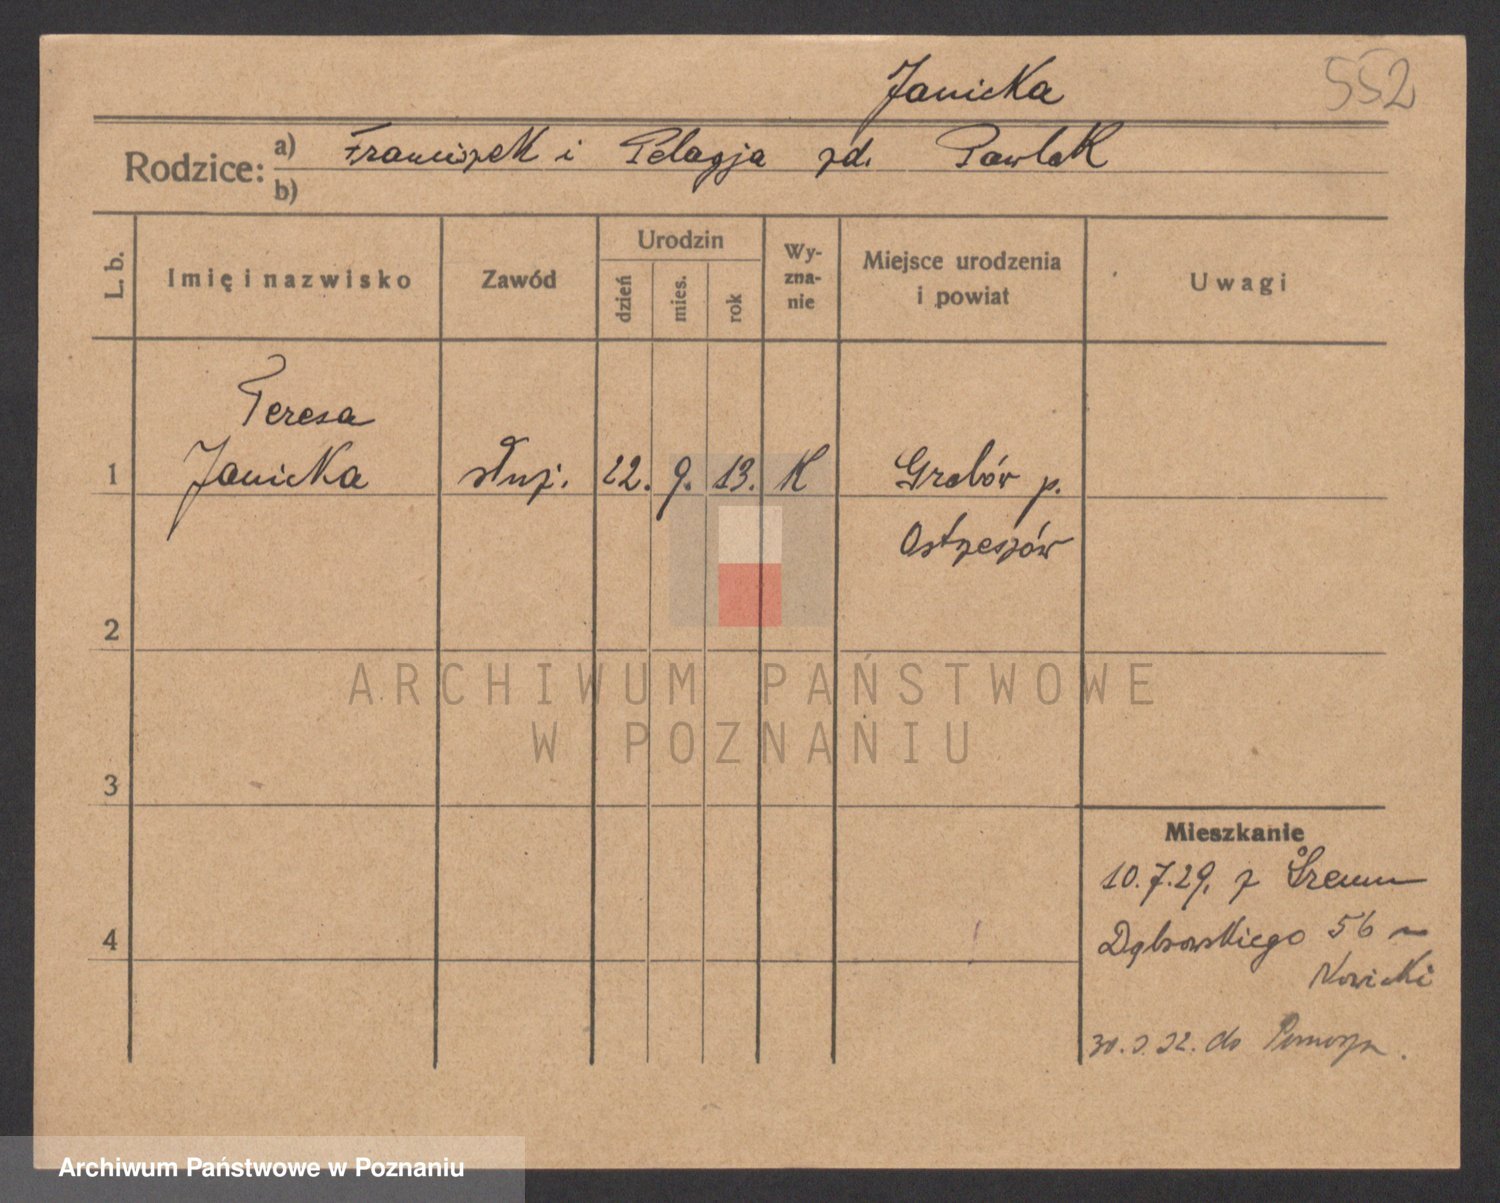 Janicka
552
Rodzice: a) Franciszek i Pelagja zd. Pawlak
b)
L. b.
Imię i nazwisko
Zawód
Urodzin
dzień
mies.
rok
Wy-
zna-
nie
Miejsce urodzenia
i powiat
Uwagi
Teresa
1 Janicka służ. 22. 9. 13. K Grabów p.
Ostrzeszów
2
ARCHIWUM PAŃSTWOWE
W POZNANIU
3
Mieszkanie
10.7.29, z Śremu
4 Dąbrowskiego 56
Nowicki
32. do
Archiwum Państwowe w Poznaniu